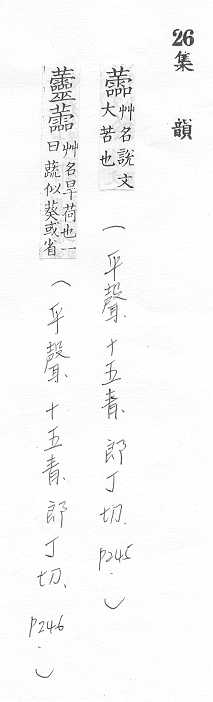 26 集韻
蘦 艸名說文
大苦也
(平聲.十五青.郎丁切.p245.)
蘦 艸名旱荷也一
曰蔬似葵或省
(平聲.十五青.郎丁切.p246.)